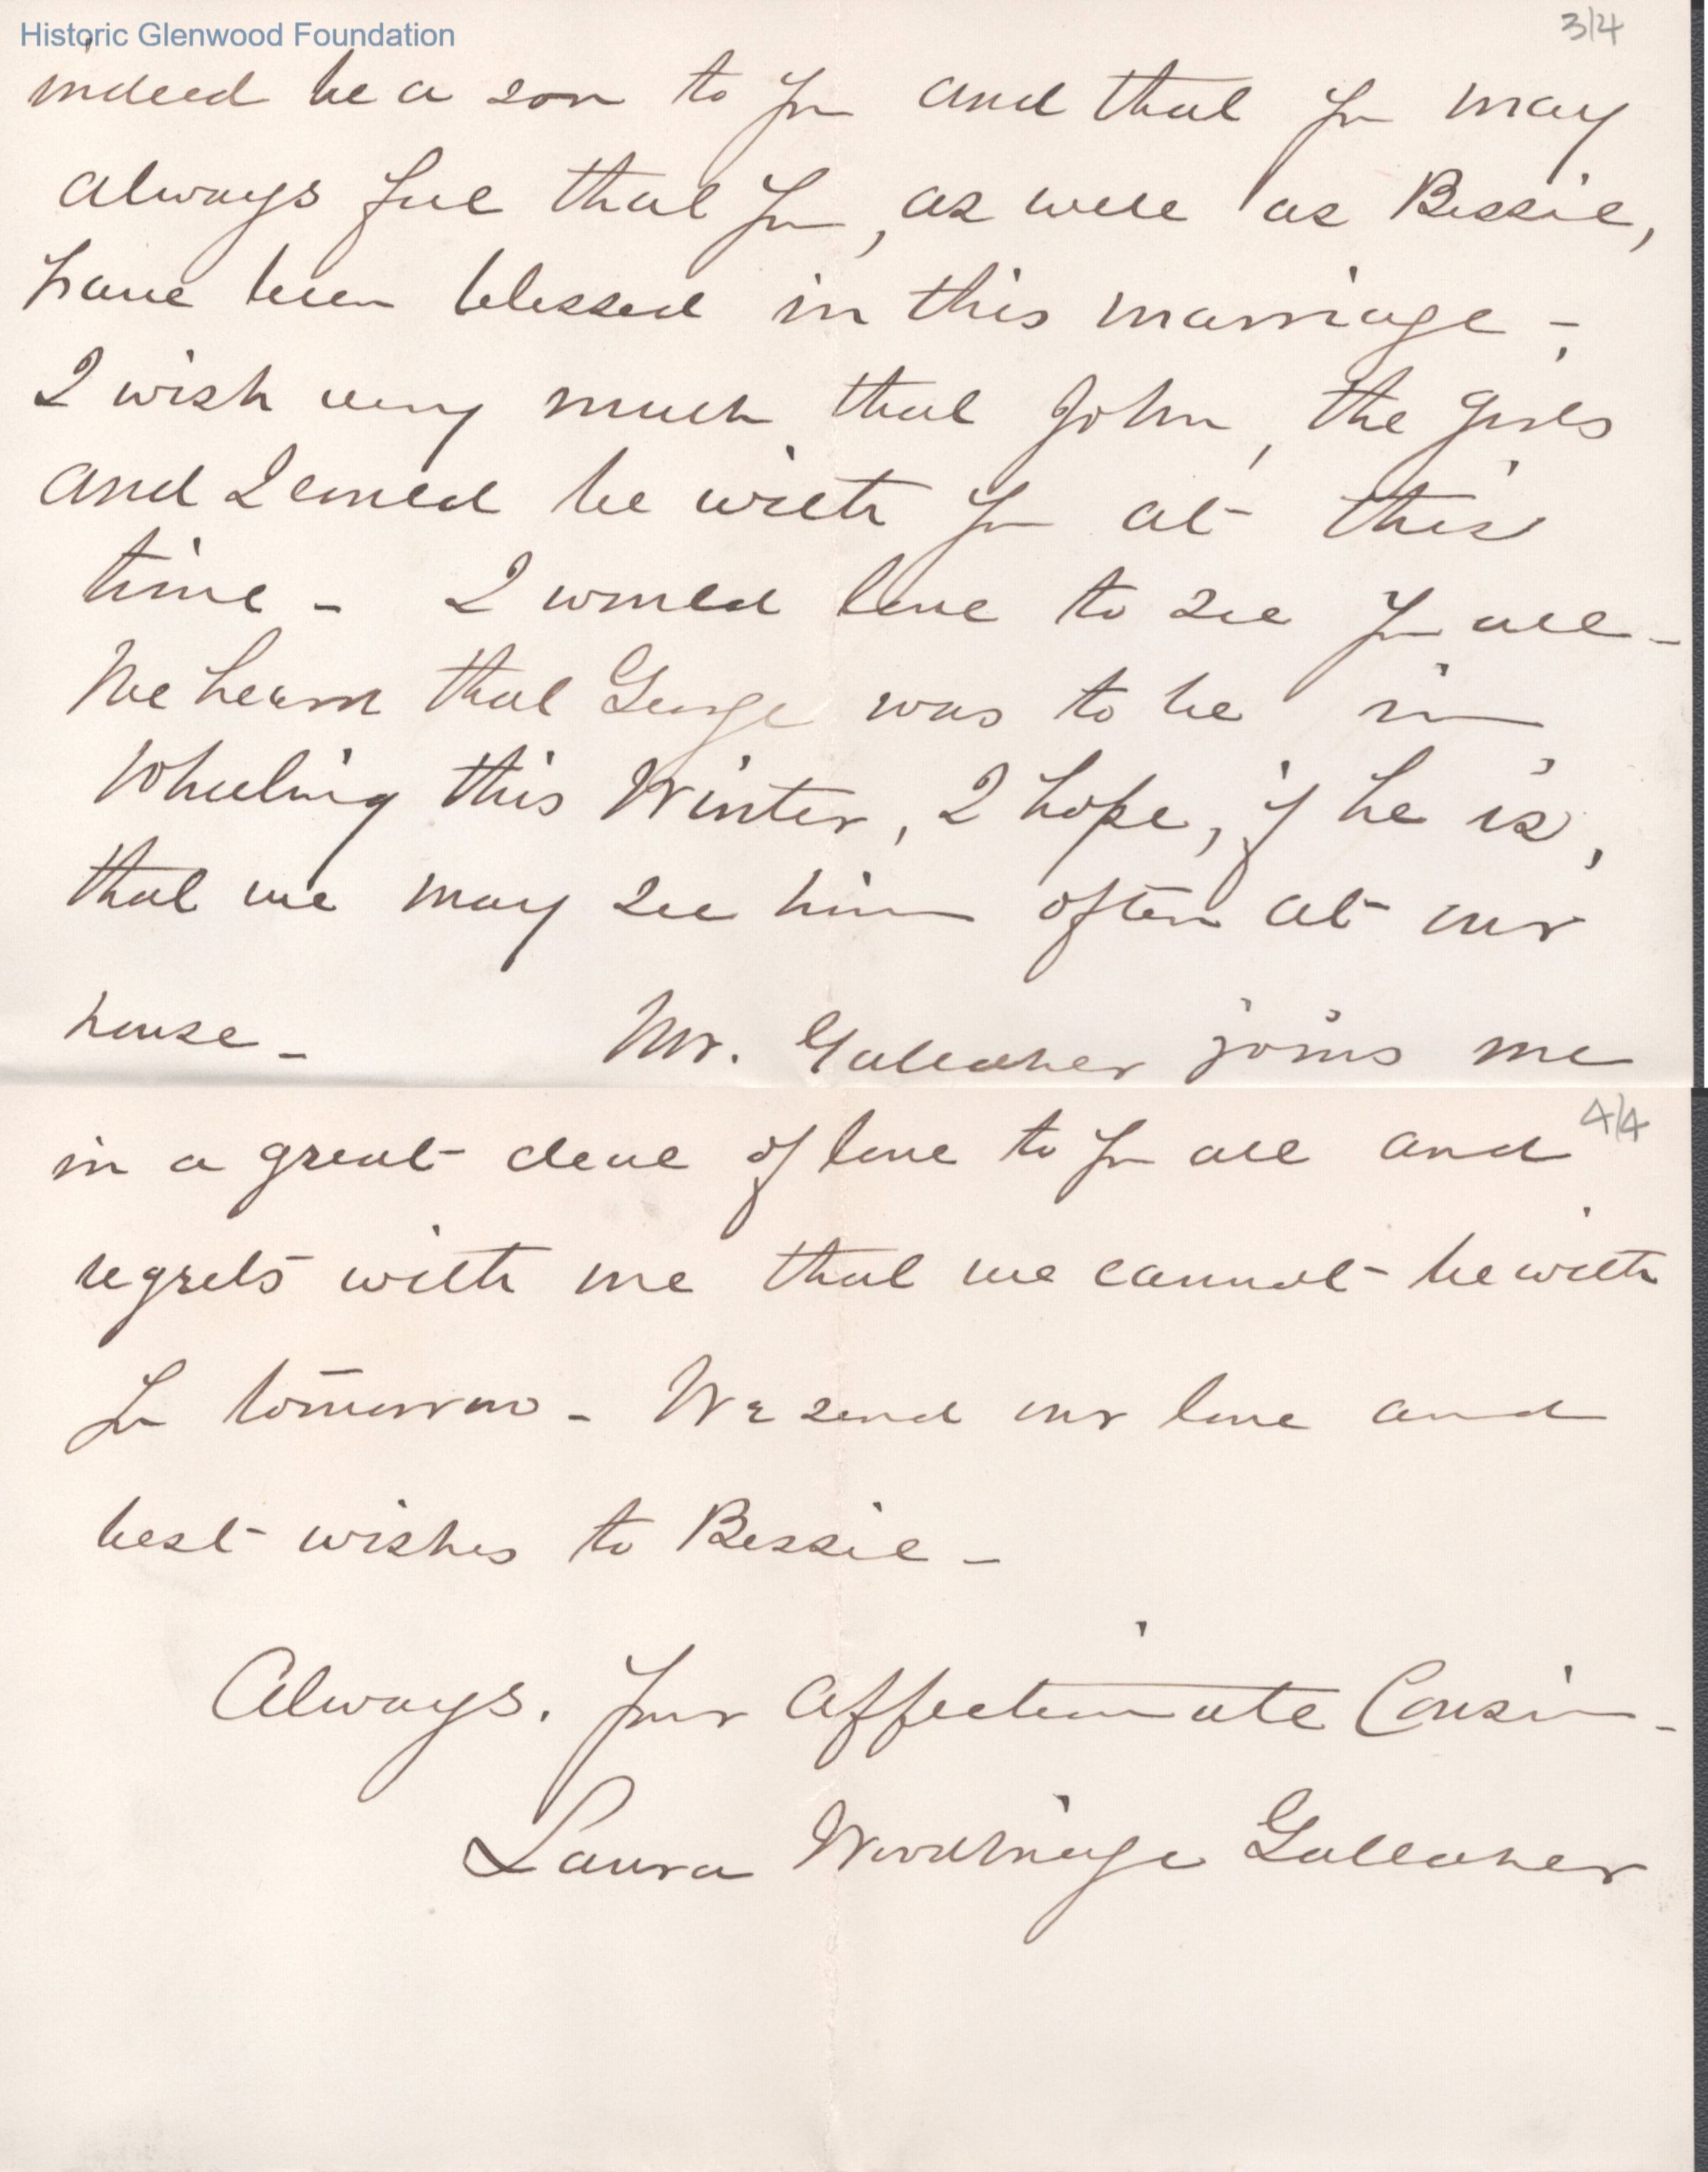 Historic Glenwood Foundation
3/4
indeed be a son to you and that you may
always feel that you, as well as Bessie,
have been blessed in this marriage -
I wish very much that John, the girls
and I could be with you at this
time - I would love to see you all -
We hear that George was to be in
Wheeling this Winter, I hope, if he is,
that we may see him often at our
house - Mr. Galleaher joins me
4/4
in a great deal of love to you all and
regrets with me that we cannot be with
you tomorrow - We send our love and
best wishes to Bessie -
Always. Your affectionate Cousin -
Laura Woodbridge Galleaher